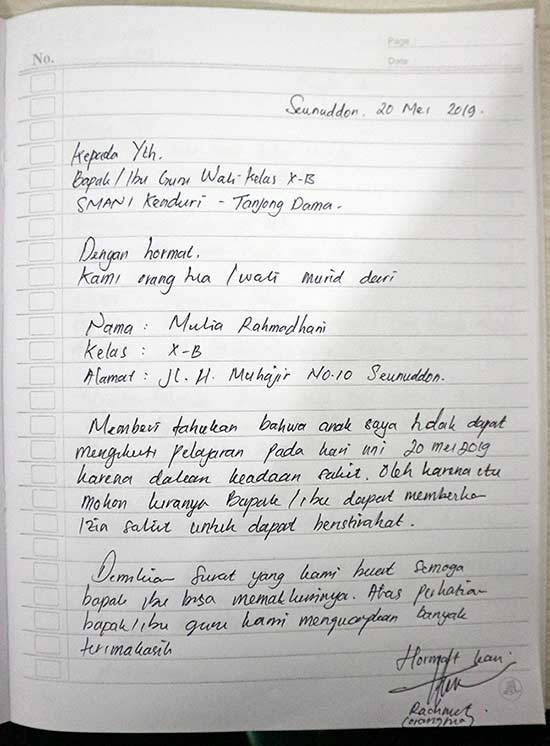 Page :
No.
Date :
Seunuddon, 20 Mei 2019.
Kepada Yth.
Bapak/Ibu Guru Wali Kelas X-B
SMAN 1 Kenduri - Tanjong Dama.
Dengan hormat,
Kami orang tua /wali murid dari
Nama : Mulia Rahmadhani
Kelas : X-B
Alamat : Jl. H. Muhajir No.10 Seunuddon.
Memberi tahukan bahwa anak saya tidak dapat
mengikuti pelajaran pada hari ini 20 mei 2019
karena dalam keadaan sakit. Oleh karena itu
mohon kiranya Bapak/ibu dapat memberikan
Izin sakit untuk dapat beristirahat.
Demikian surat yang kami buat semoga
bapak ibu bisa memakluminya. Atas perhatian
bapak/ibu guru kami mengucapkan banyak
terimakasih
Hormat kami.
Rachmat.
(orangtua)